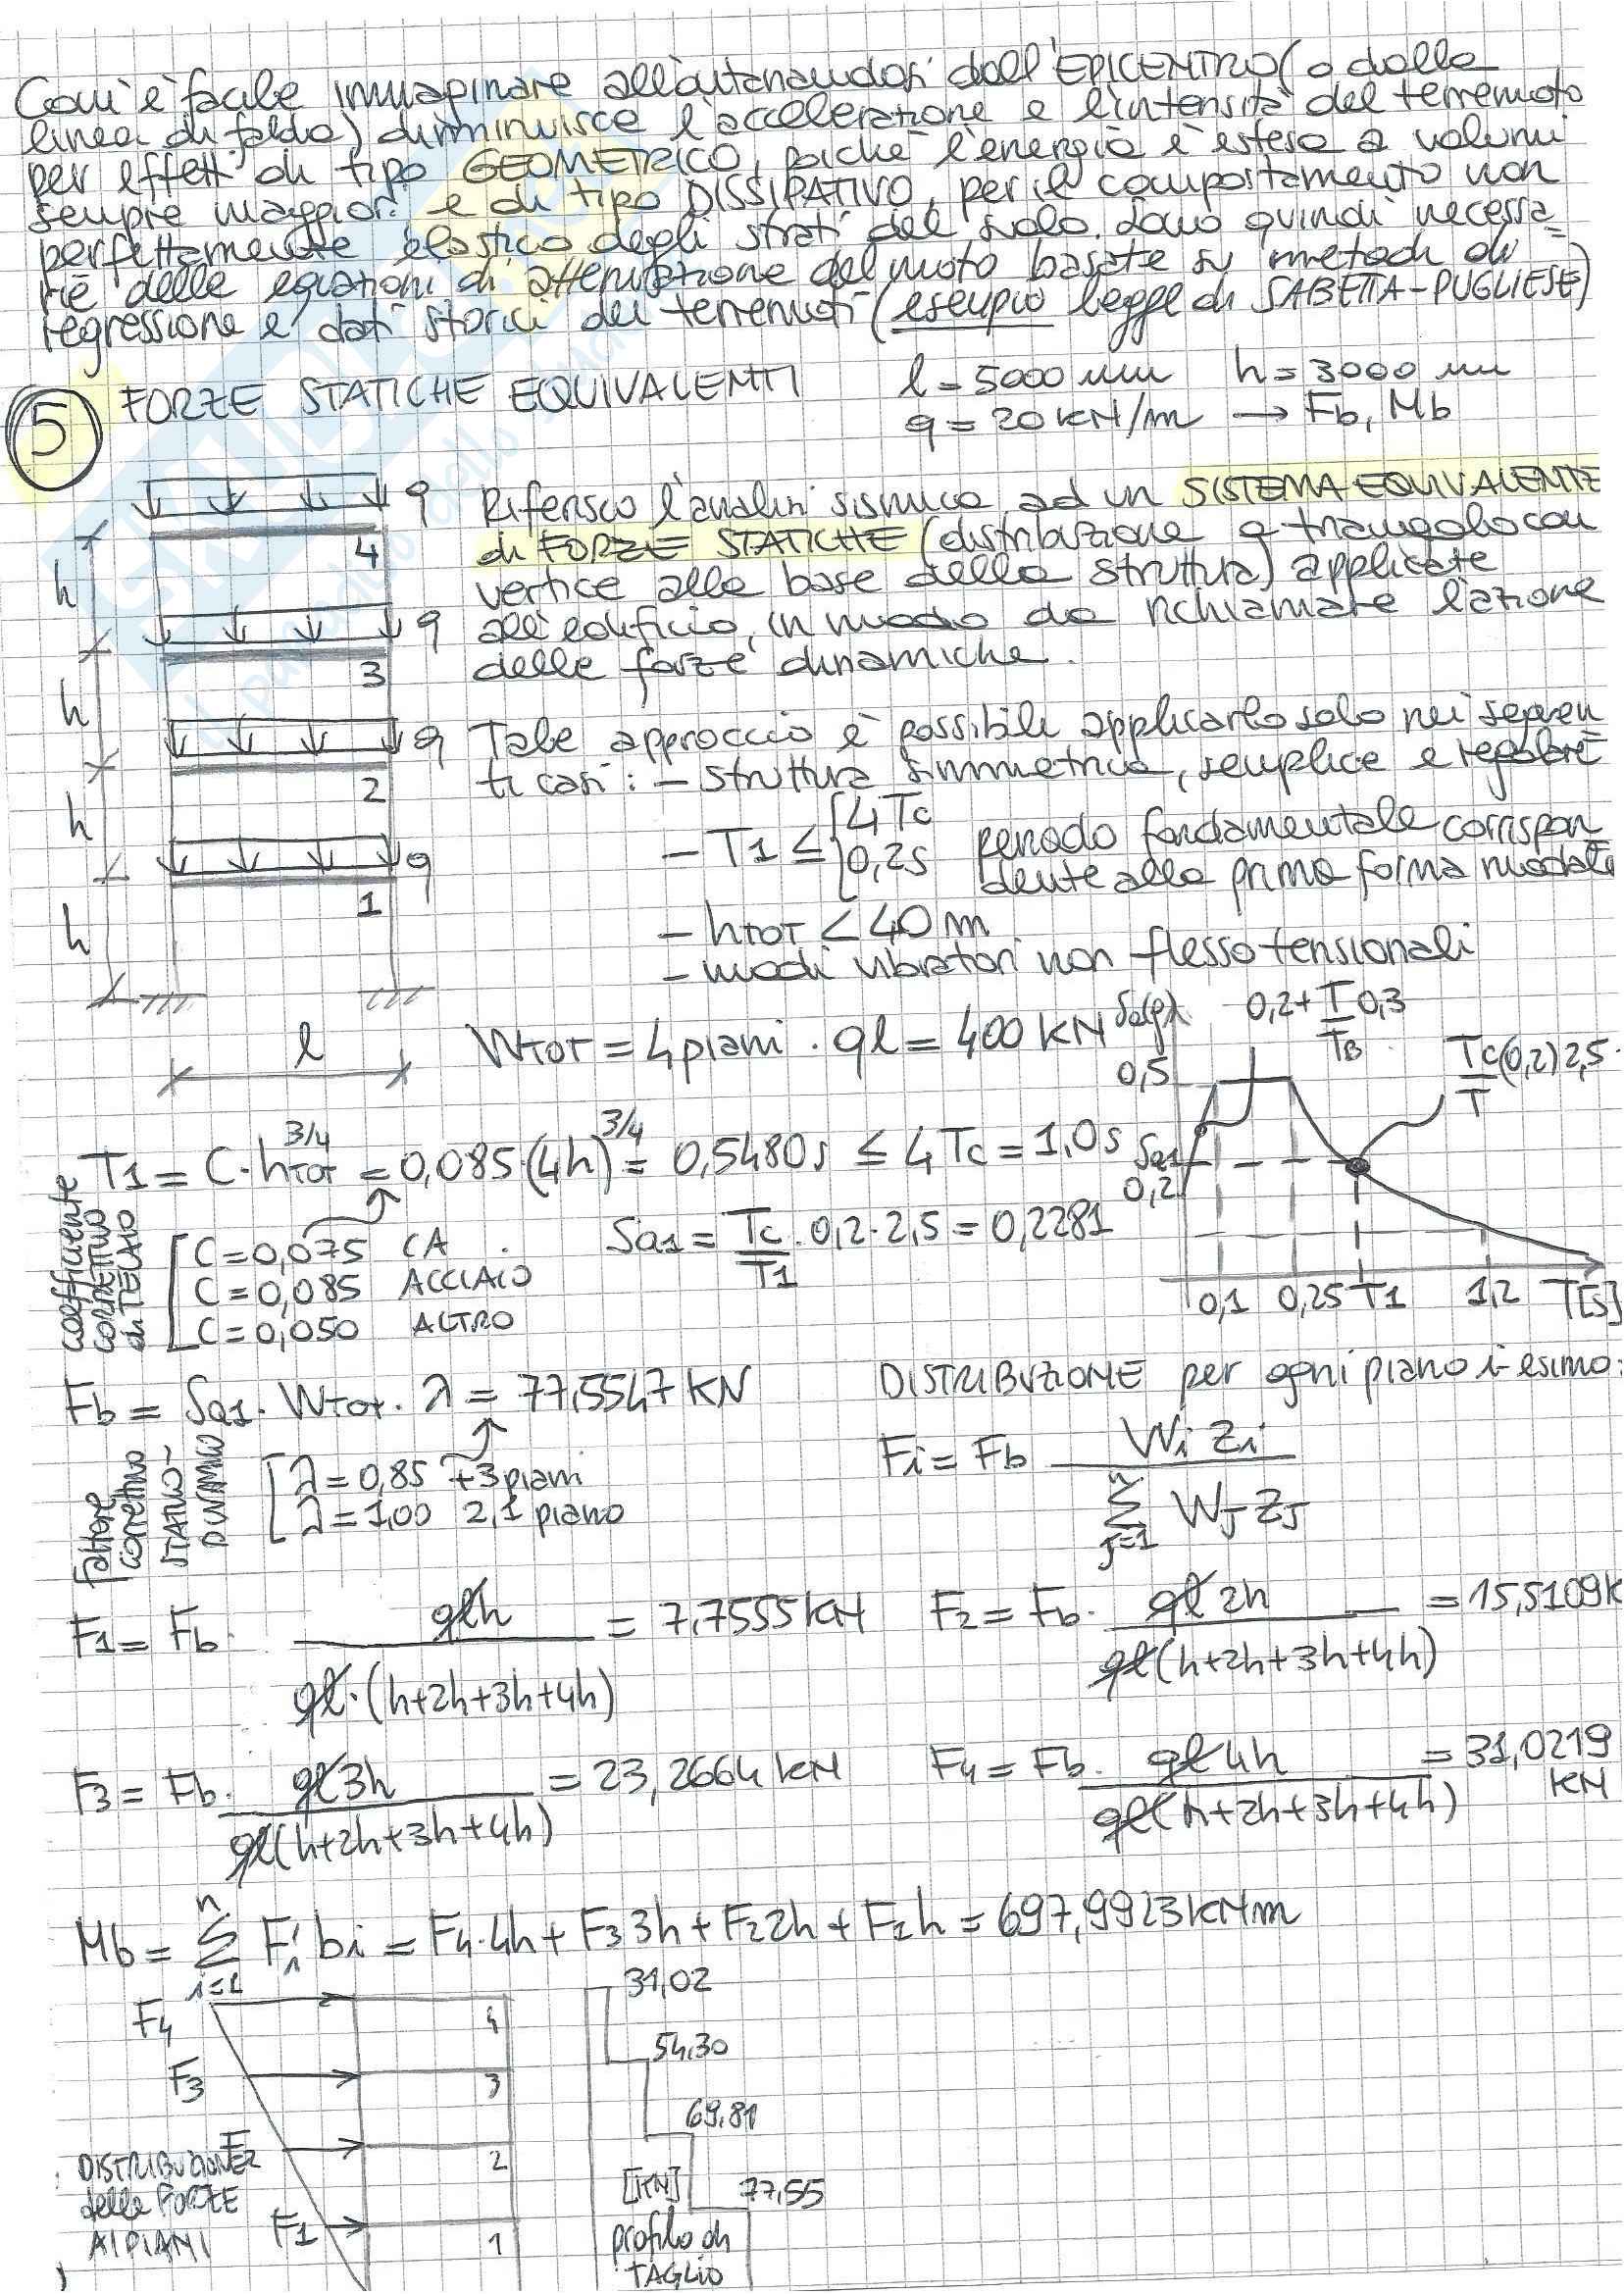 Com'è facile immaginare allontanandosi dall'EPICENTRO (o dalla
linea di faglia) dimminuisce l'accelerazione e l'intensità del terremoto
per effetti di tipo GEOMETRICO, poiché l'energia è estesa a volumi
sempre maggiori e di tipo DISSIPATIVO, per il comportamento non
perfettamente elastico degli strati del suolo. Sono quindi necessa=
rie delle equazioni di attenuazione del moto basate su metodi di
regressione e dati storici dei terremoti (esempio legge di SABETTA-PUGLIESE)
5 FORZE STATICHE EQUIVALENTI l = 5000 mm h = 3000 mm
q = 20 kN/m → Fb, Mb
q Riferisco l'analisi sismica ad un SISTEMA EQUIVALENTE
4 di FORZE STATICHE (distribuzione a triangolo con
h vertice alla base della struttura) applicate
q all'edificio, in modo da richiamare l'azione
3 delle forze dinamiche.
h
q Tale approccio è possibile applicarlo solo nei seguen=
2 ti casi: - struttura simmetrica, semplice e regolare
h - T1 ≤ { 4Tc
0,2s periodo fondamentale corrispon=
q dente alla prima forma modale
1
h - hTOT < 40 m
- modi vibratori non flessotensionali
l WTOT = 4 piani · ql = 400 KN
Sa(g) 0,2 + T/TB 0,3
0,5 Tc/T (0,2) 2,5
T1 = C · hTOT^3/4 = 0,085 (4h)^3/4 = 0,5480s ≤ 4Tc = 1,0s Sa1
0,2
coefficiente correttivo di TELAIO
C = 0,075 CA
C = 0,085 ACCIAIO
C = 0,050 ALTRO
Sa1 = Tc/T1 · 0,2 · 2,5 = 0,2281
0,1 0,25 T1 1,2 T[s]
Fb = Sa1 · WTOT · λ = 77,5547 KN DISTRIBUZIONE per ogni piano i-esimo:
Fattore correttivo STATICO-DINAMICO
λ = 0,85 +3 piani
λ = 1,00 2,1 piano
Fi = Fb Wi zi / Σ(j=1, n) WJ zJ
F1 = Fb · qlh / ql·(h+2h+3h+4h) = 7,7555 KN F2 = Fb · ql 2h / ql(h+2h+3h+4h) = 15,5109 K
F3 = Fb · ql 3h / ql(h+2h+3h+4h) = 23,2664 KN F4 = Fb · ql 4h / ql(h+2h+3h+4h) = 31,0219 KN
Mb = Σ(i=1, n) Fi bi = F4·4h + F3 3h + F2 2h + F1 h = 697,9923 kNm
F4 4 31,02
F3 3 54,30
F2 2 69,81
DISTRIBUZIONE delle FORZE AI PIANI
F1 1 77,55
[KN]
profilo di TAGLIO